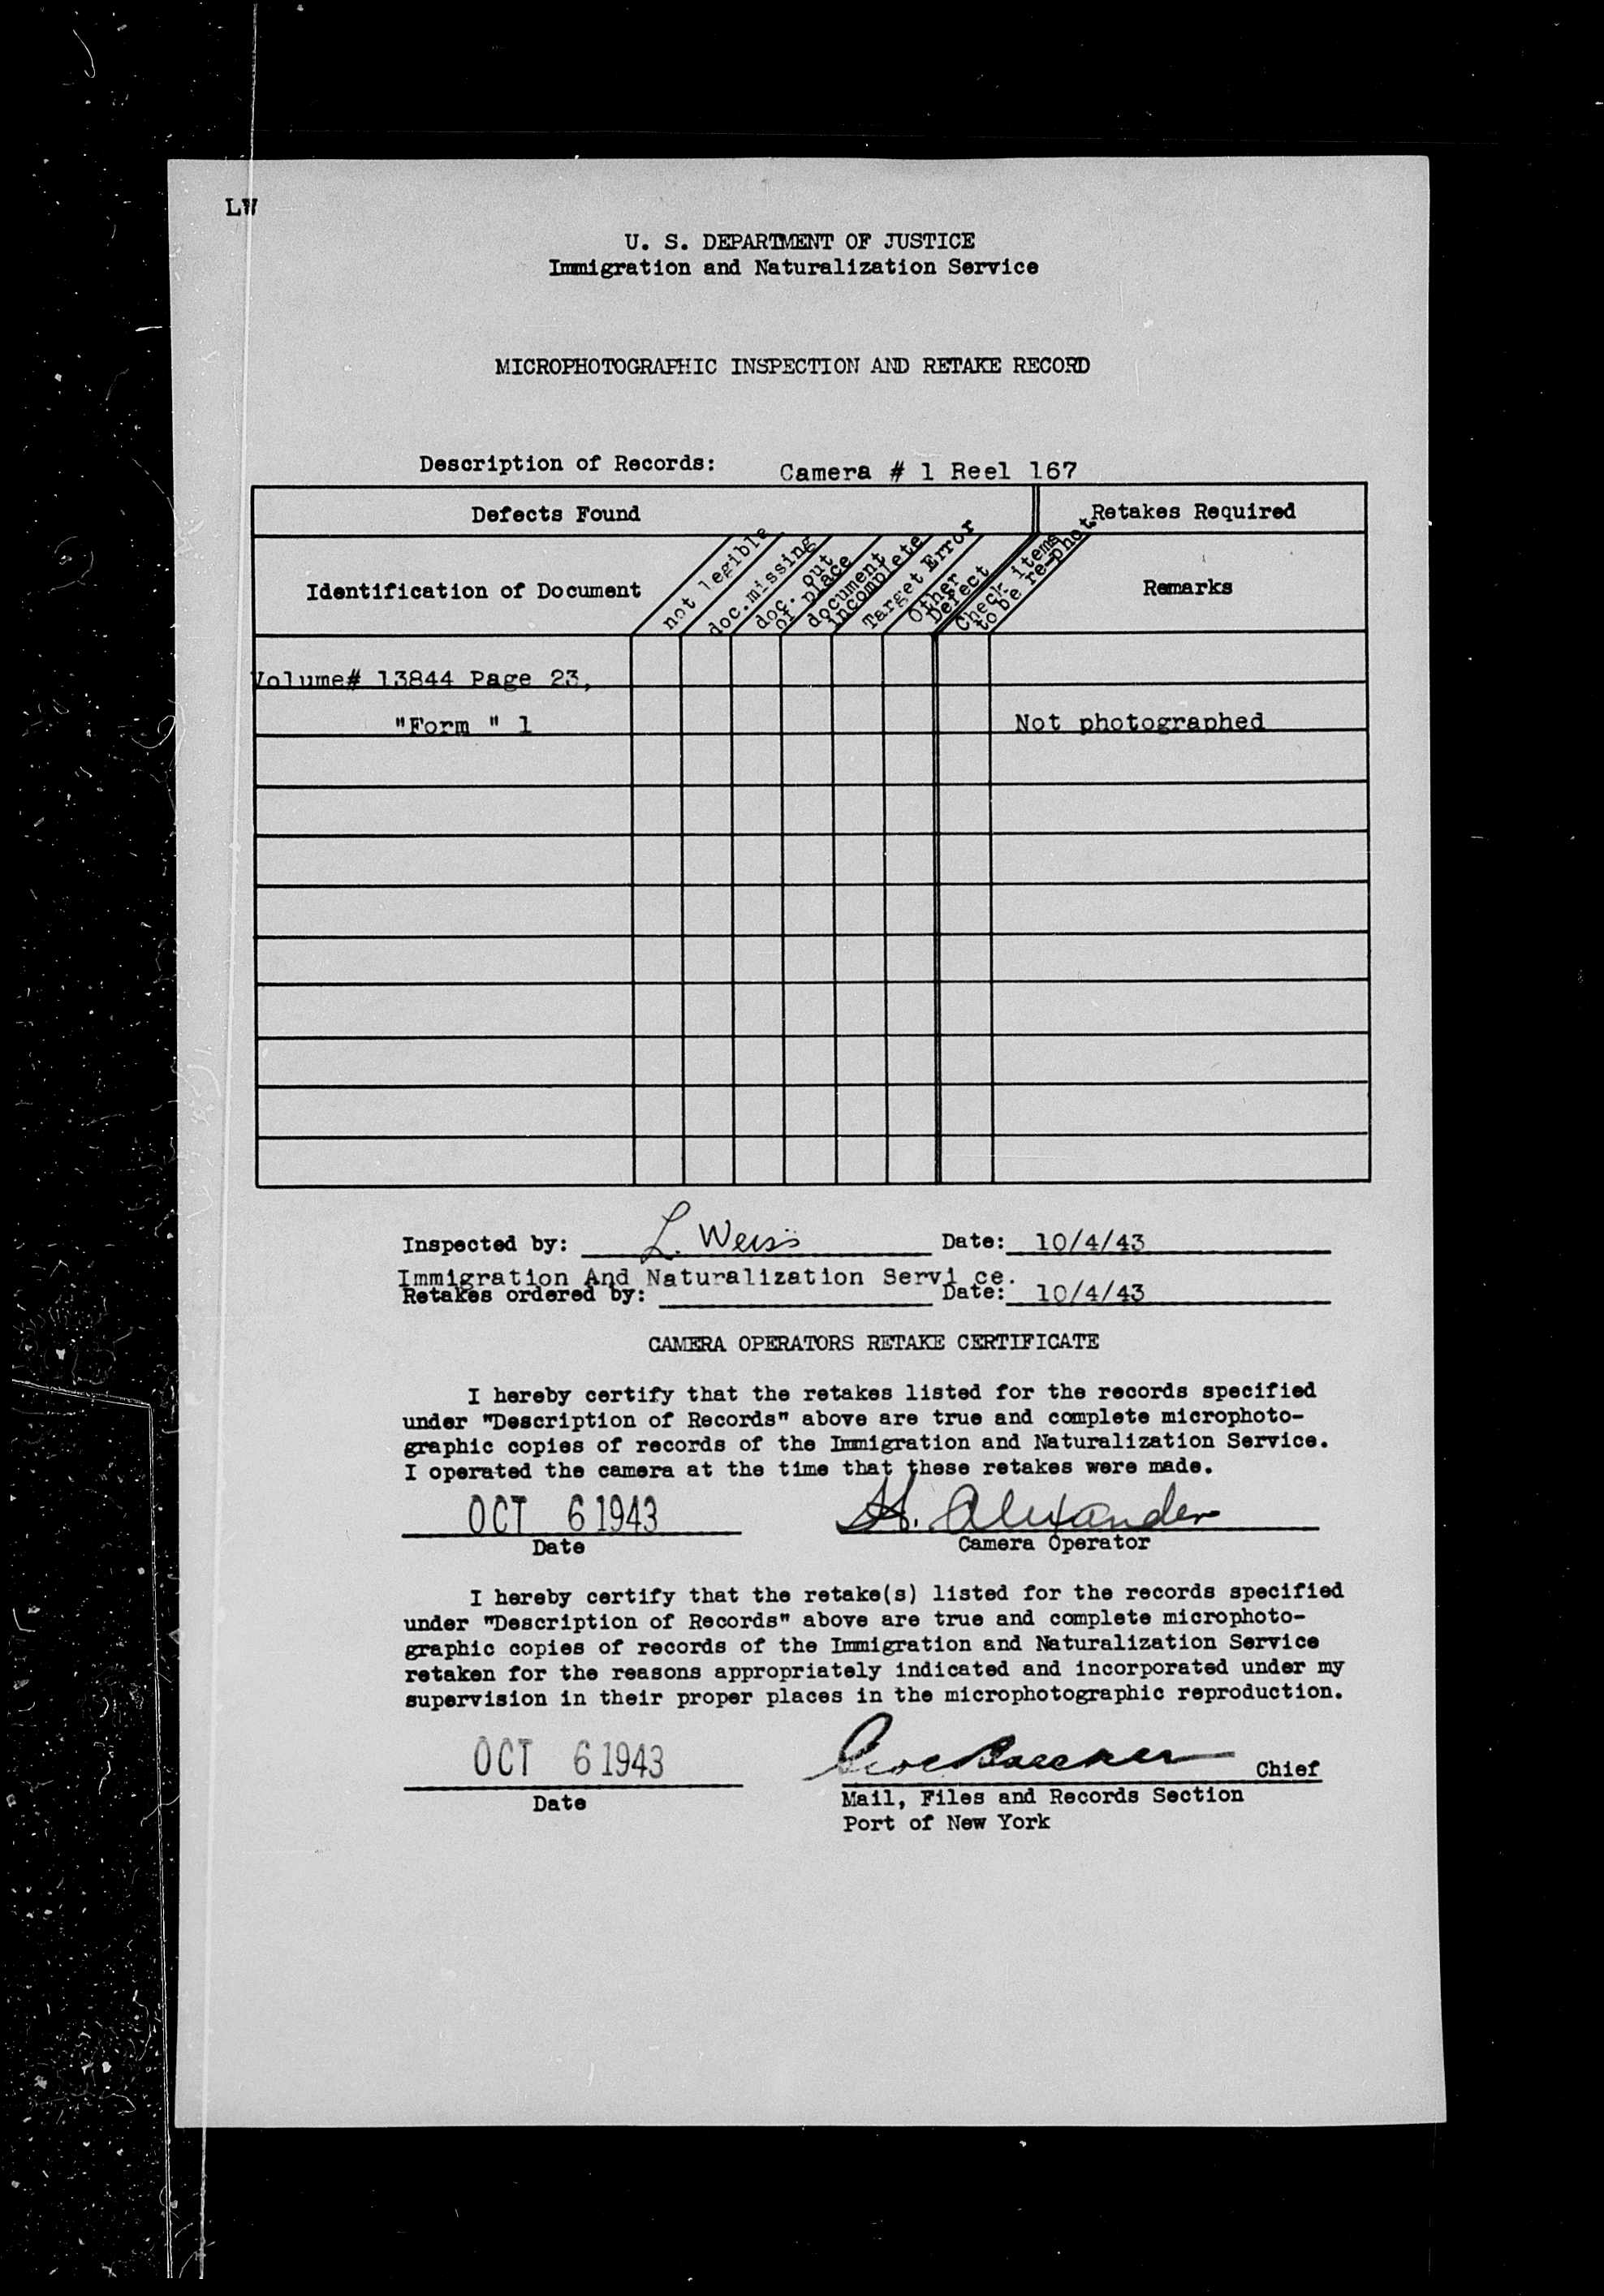 LW
U. S. DEPARTMENT OF JUSTICE
Immigration and Naturalization Service
MICROPHOTOGRAPHIC INSPECTION AND RETAKE RECORD
Description of Records: Camera # 1 Reel 167
Defects Found Retakes Required
Identification of Document
not legible
doc.missing
doc. out
of place
document
incomplete
Target Error
Other
Defect
Check items
to be re-phot
Remarks
Volume# 13844 Page 23,
"Form " 1 Not photographed
Inspected by: L. Weiss Date: 10/4/43
Immigration And Naturalization Servi ce.
Retakes ordered by: Date: 10/4/43
CAMERA OPERATORS RETAKE CERTIFICATE
I hereby certify that the retakes listed for the records specified
under "Description of Records" above are true and complete microphoto-
graphic copies of records of the Immigration and Naturalization Service.
I operated the camera at the time that these retakes were made.
OCT 6 1943 H. Alexander
Date Camera Operator
I hereby certify that the retake(s) listed for the records specified
under "Description of Records" above are true and complete microphoto-
graphic copies of records of the Immigration and Naturalization Service
retaken for the reasons appropriately indicated and incorporated under my
supervision in their proper places in the microphotographic reproduction.
OCT 6 1943 Chief
Date Mail, Files and Records Section
Port of New York